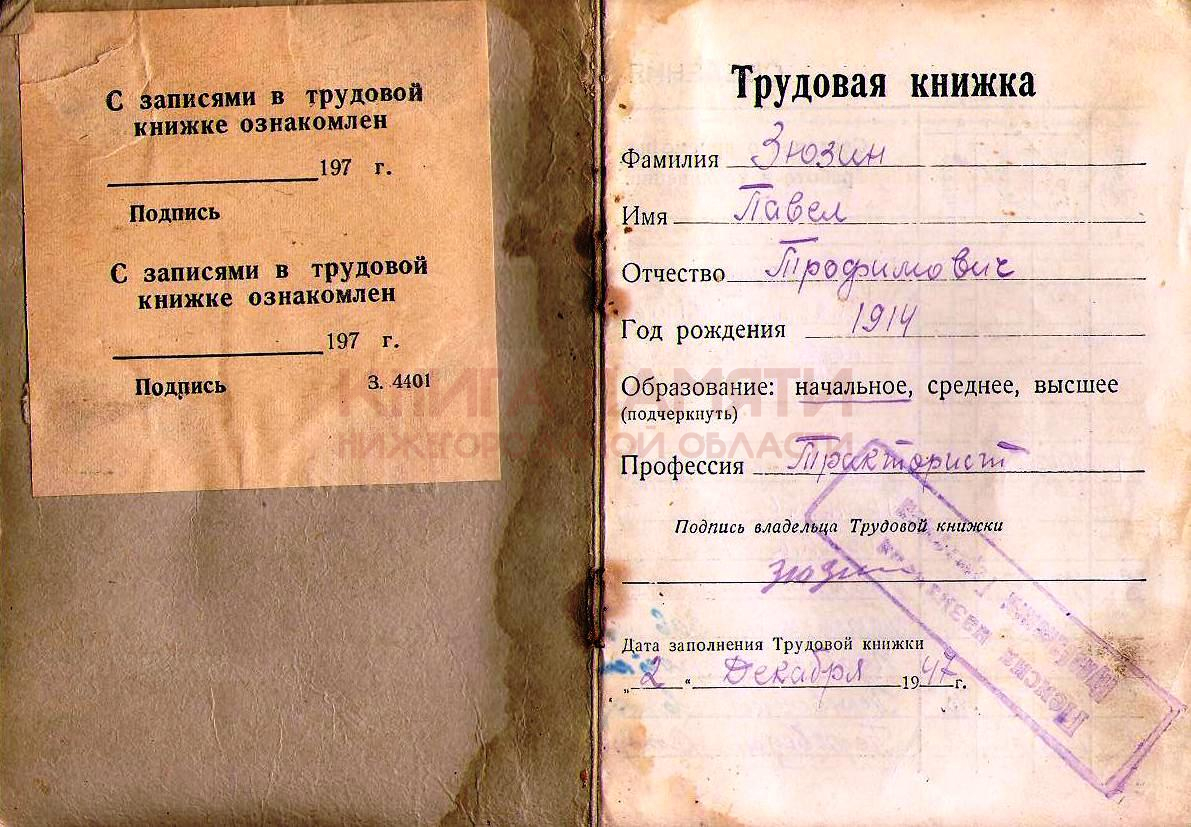 С записями в трудовой
книжке ознакомлен
197 г.
Подпись
С записями в трудовой
книжке ознакомлен
197 г.
Подпись З. 4401
Трудовая книжка
Фамилия Зюзин
Имя Павел
Отчество Трофимович
Год рождения 1914
Образование: начальное, среднее, высшее
(подчеркнуть)
Профессия Тракторист
Подпись владельца Трудовой книжки
Зюзин
Дата заполнения Трудовой книжки
„2“ Декабря 1947 г.
КНИГА ПАМЯТИ
НИЖЕГОРОДСКОЙ ОБЛАСТИ